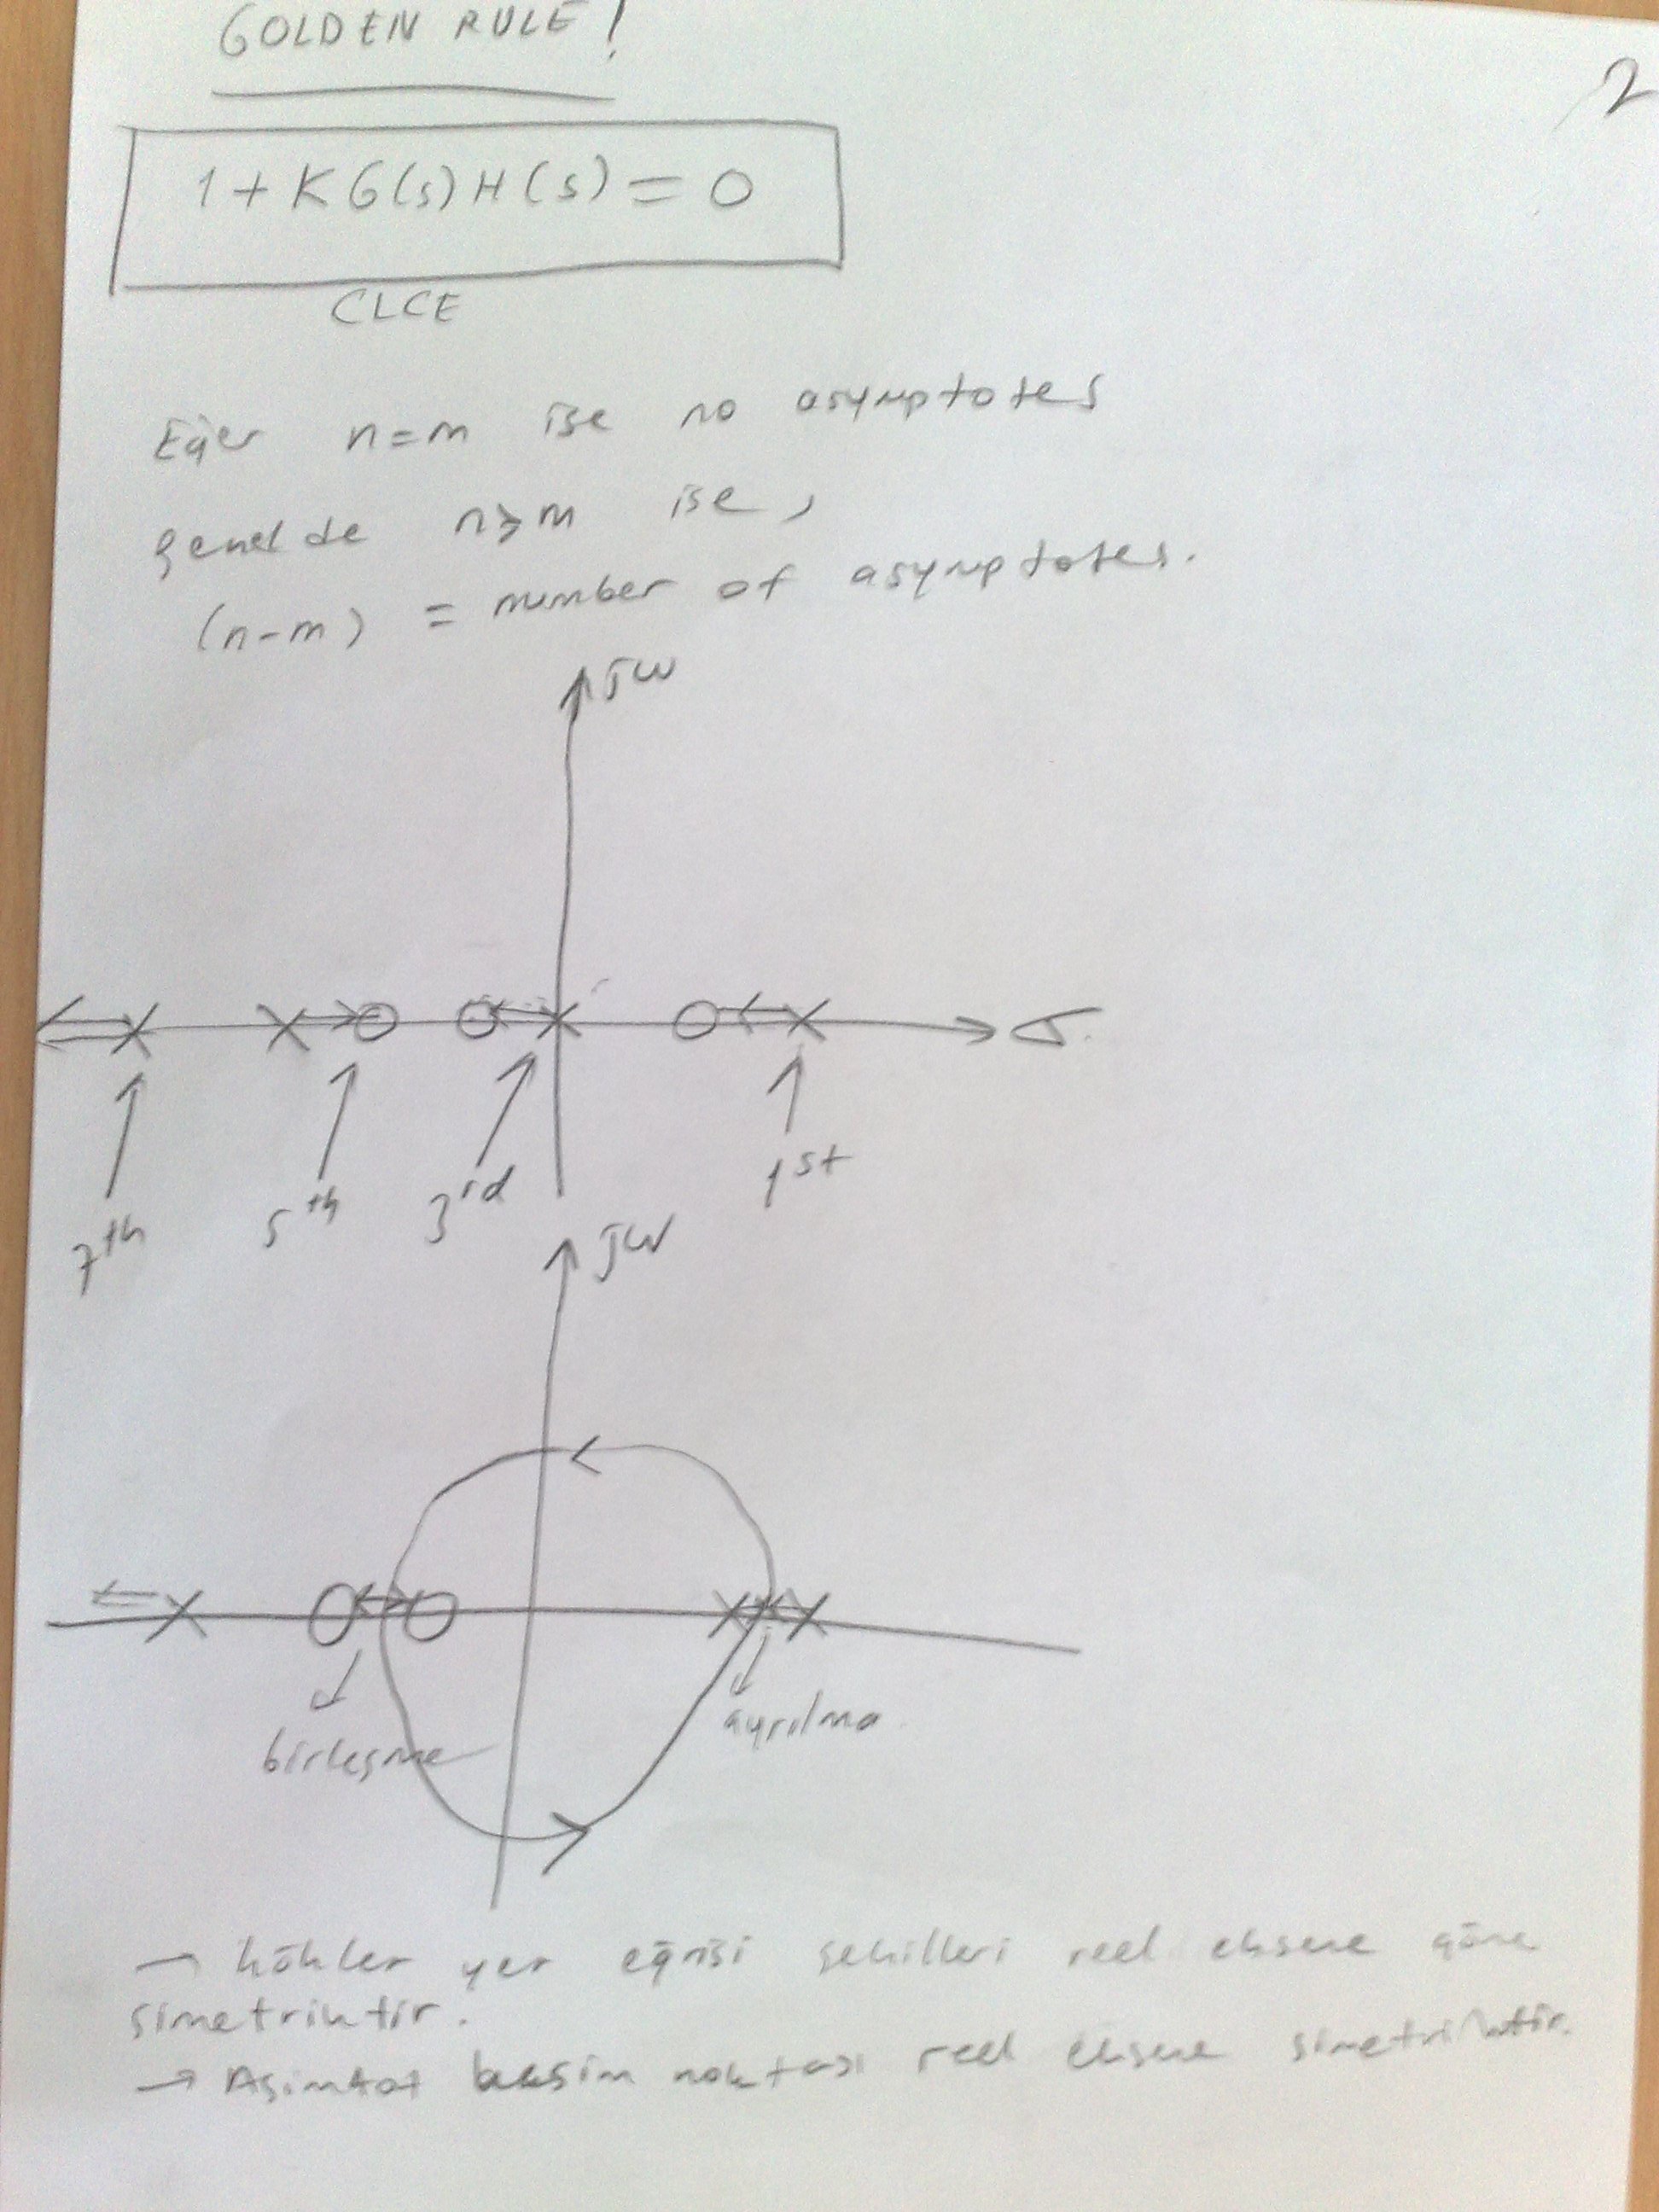 GOLDEN RULE!
2
1+KG(s)H(s)=0
CLCE
Eğer n=m ise no asymptotes
genelde n≥m ise,
(n-m) = number of asymptotes.
jw
σ
7th 5th 3rd 1st
jw
birleşme ayrılma
→ kökler yer eğrisi şekilleri reel eksene göre
simetriktir.
→ Asimtot kesim noktası reel eksene simetriktir.